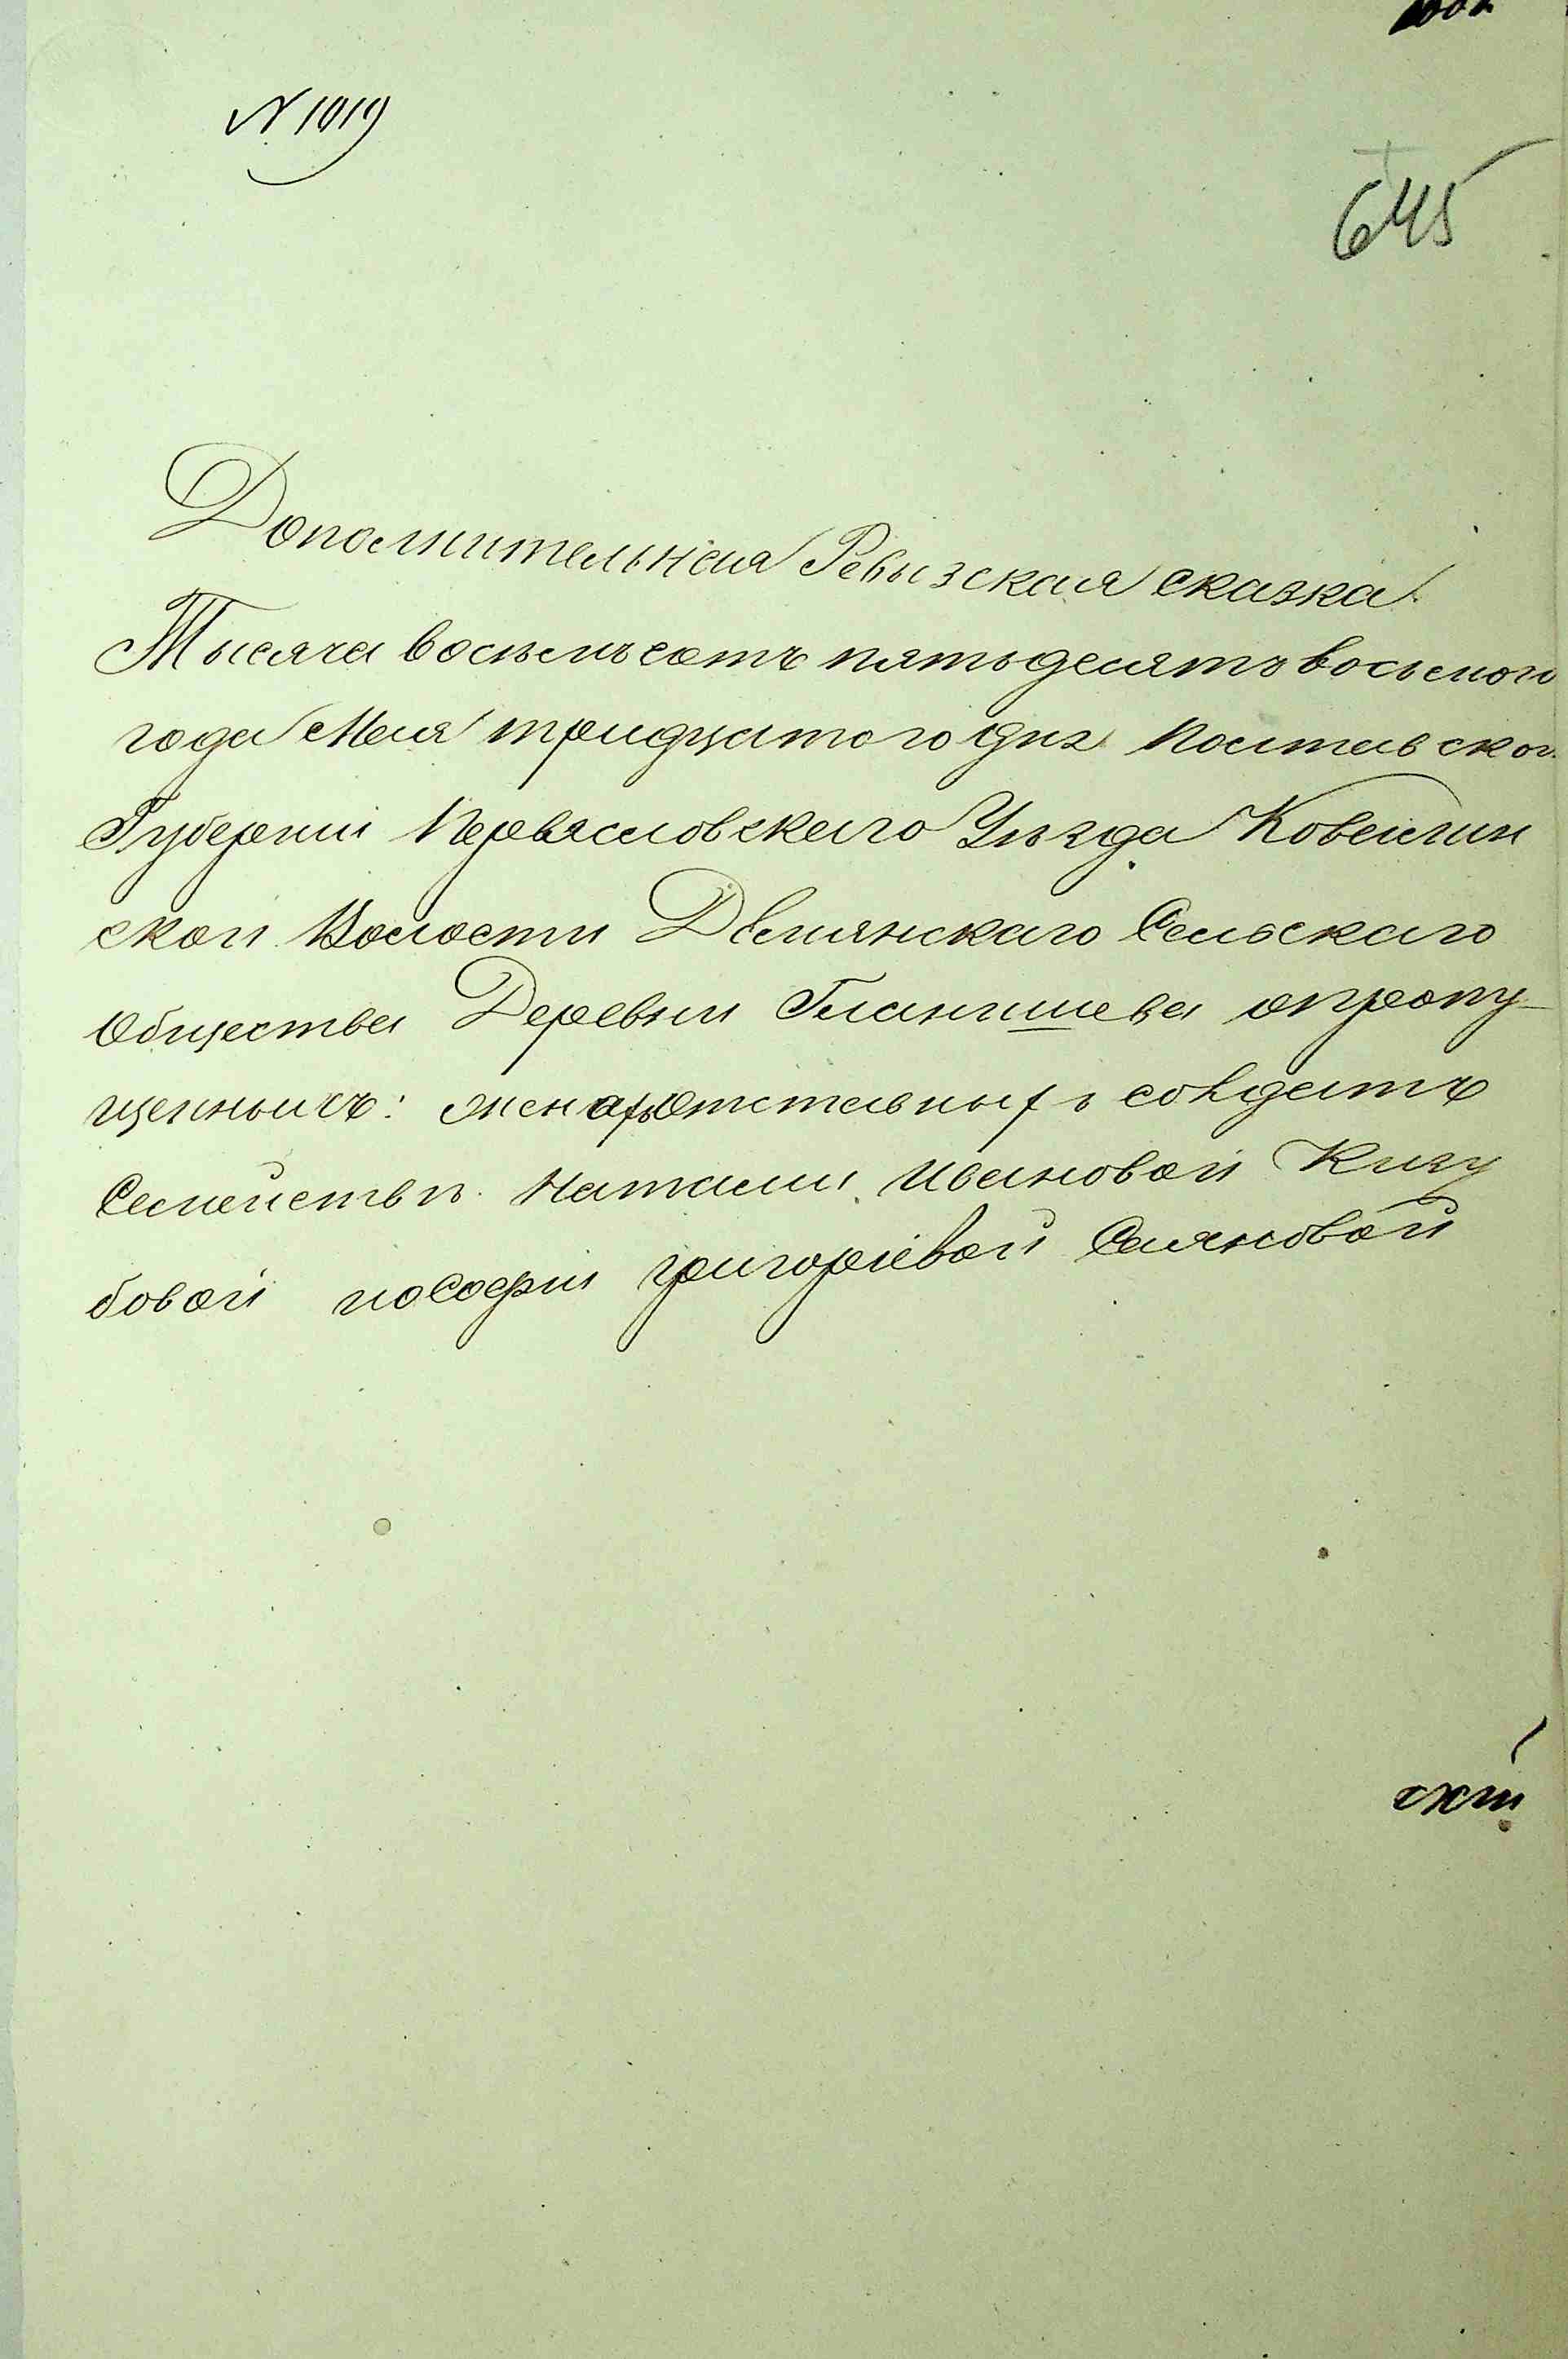 N 1019
645
Дополнительная Ревызская сказка
Тысяча восемъсотъ пятьдесятъ восьмого
года Мая тридцатого дня Полтавской
Губернии Переяславского Уѣзда Ковалин
ской Волости Девичкаго Сельскаго
Общества Деревни Гланишева опропу-
щенныхъ: женахъ отставныхъ солдатъ
Семействѣ. Натали Ивановой Кизу
бовой и Софии григориевой Саляновой
ской